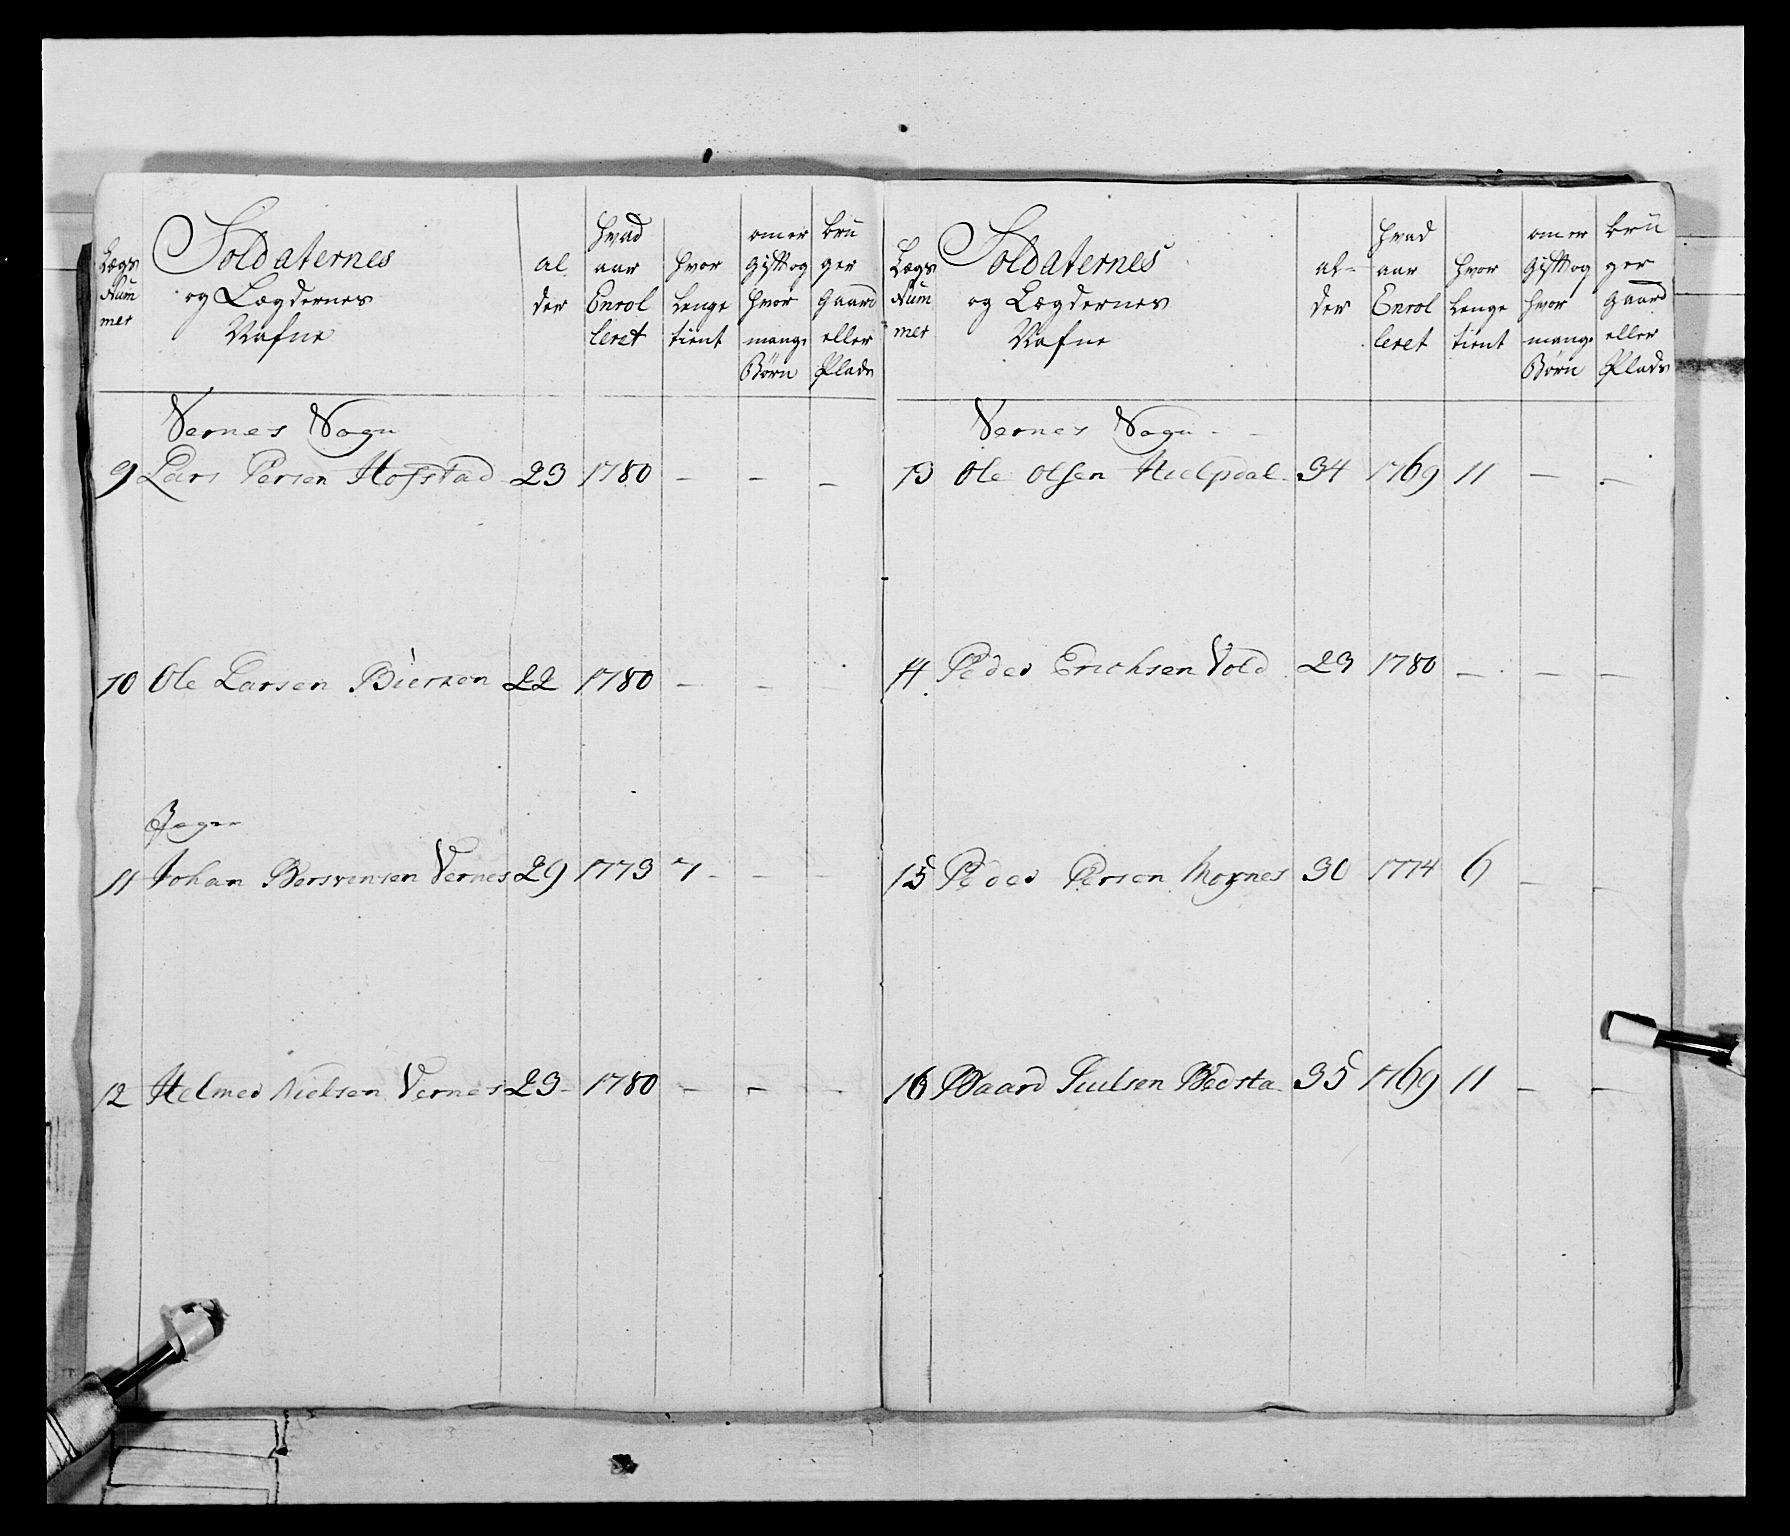 Lægs Num mer | Soldaternes og Lægdernes Nafne | al der | hvad aar Enrol leret | hvor lenge tient | om er gift og hvor mange Börn | brü ger gaard eller Plads
Vernes Sogn
9 Lars Persen Hofstad 23 1780 – – –
10 Ole Larsen Bierkan 22 1780 – – –
Jæger
11 Johan Bersvensen Vernes 29 1773 7 – – –
12 Helmer Nielsen Vernes 23 – 1780 – – –
Lægs Num mer | Soldaternes og Lægdernes Nafne | al– der | hvad aar Enrol leret | hvor lenge tient | om er gift og hvor mange Börn | brü ger gaard eller Plads
Vernes Sogn – –
13 Ole Olsen Hielpdal 34 1769 11 – –
14 Peder Erichsen Vold 23 1780 – – –
15 Peder Persen 30 1774 6 – –
16 Baard 35 1769 11 – –